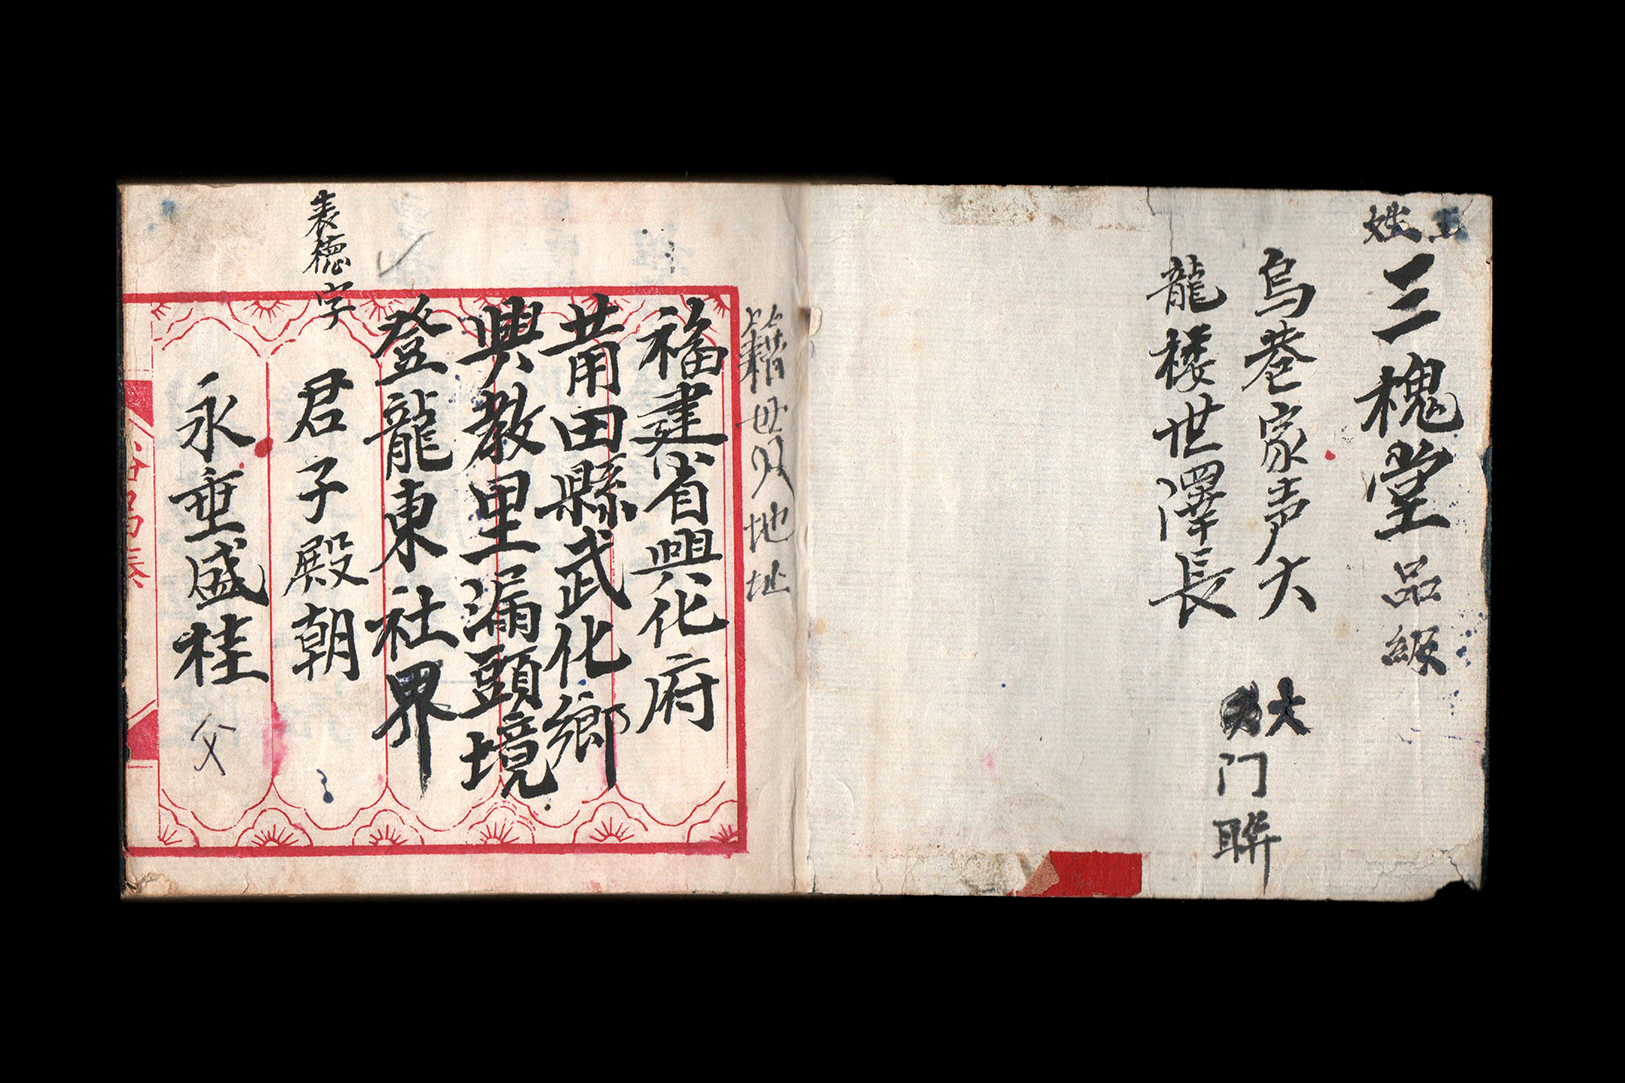 姓王
三槐堂品級
烏巷家声大
龍楼世澤長
大门聨
籍世及地址
福建省興化府
莆田縣武化鄉
興教里漏頭境
登龍東社界
表德字
君子殿朝
永垂盛桂父